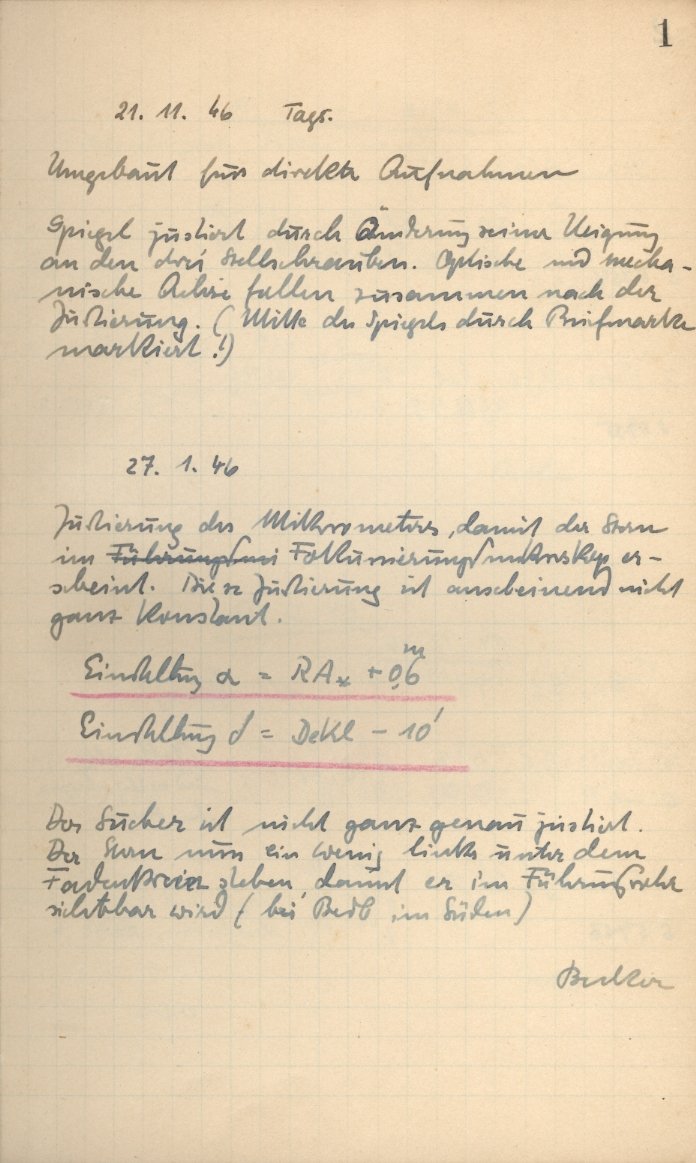 1
21. 11. 46 Tags.
Umgebaut für direkte Aufnahmen
Spiegel justiert durch Änderung seiner Neigung
an den drei Stellschrauben. Optische und mecha-
nische Achse fallen zusammen nach der
Justierung. (Mitte des Spiegels durch Briefmarke
markiert!)
27. 1. 46
Justierung des Mikrometers, damit der Stern
im Fokussierungsmikroskop er-
scheint. Diese Justierung ist anscheinend nicht
ganz konstant.
Einstellung α = RA* + 0,6m
Einstellung δ = Dekl − 10'
Der Sucher ist nicht ganz genau justiert.
Der Stern muss ein wenig links unter dem
Fadenkreuz stehen, damit er im Führungsrohr
sichtbar wird (bei Beob im Süden)
Becker